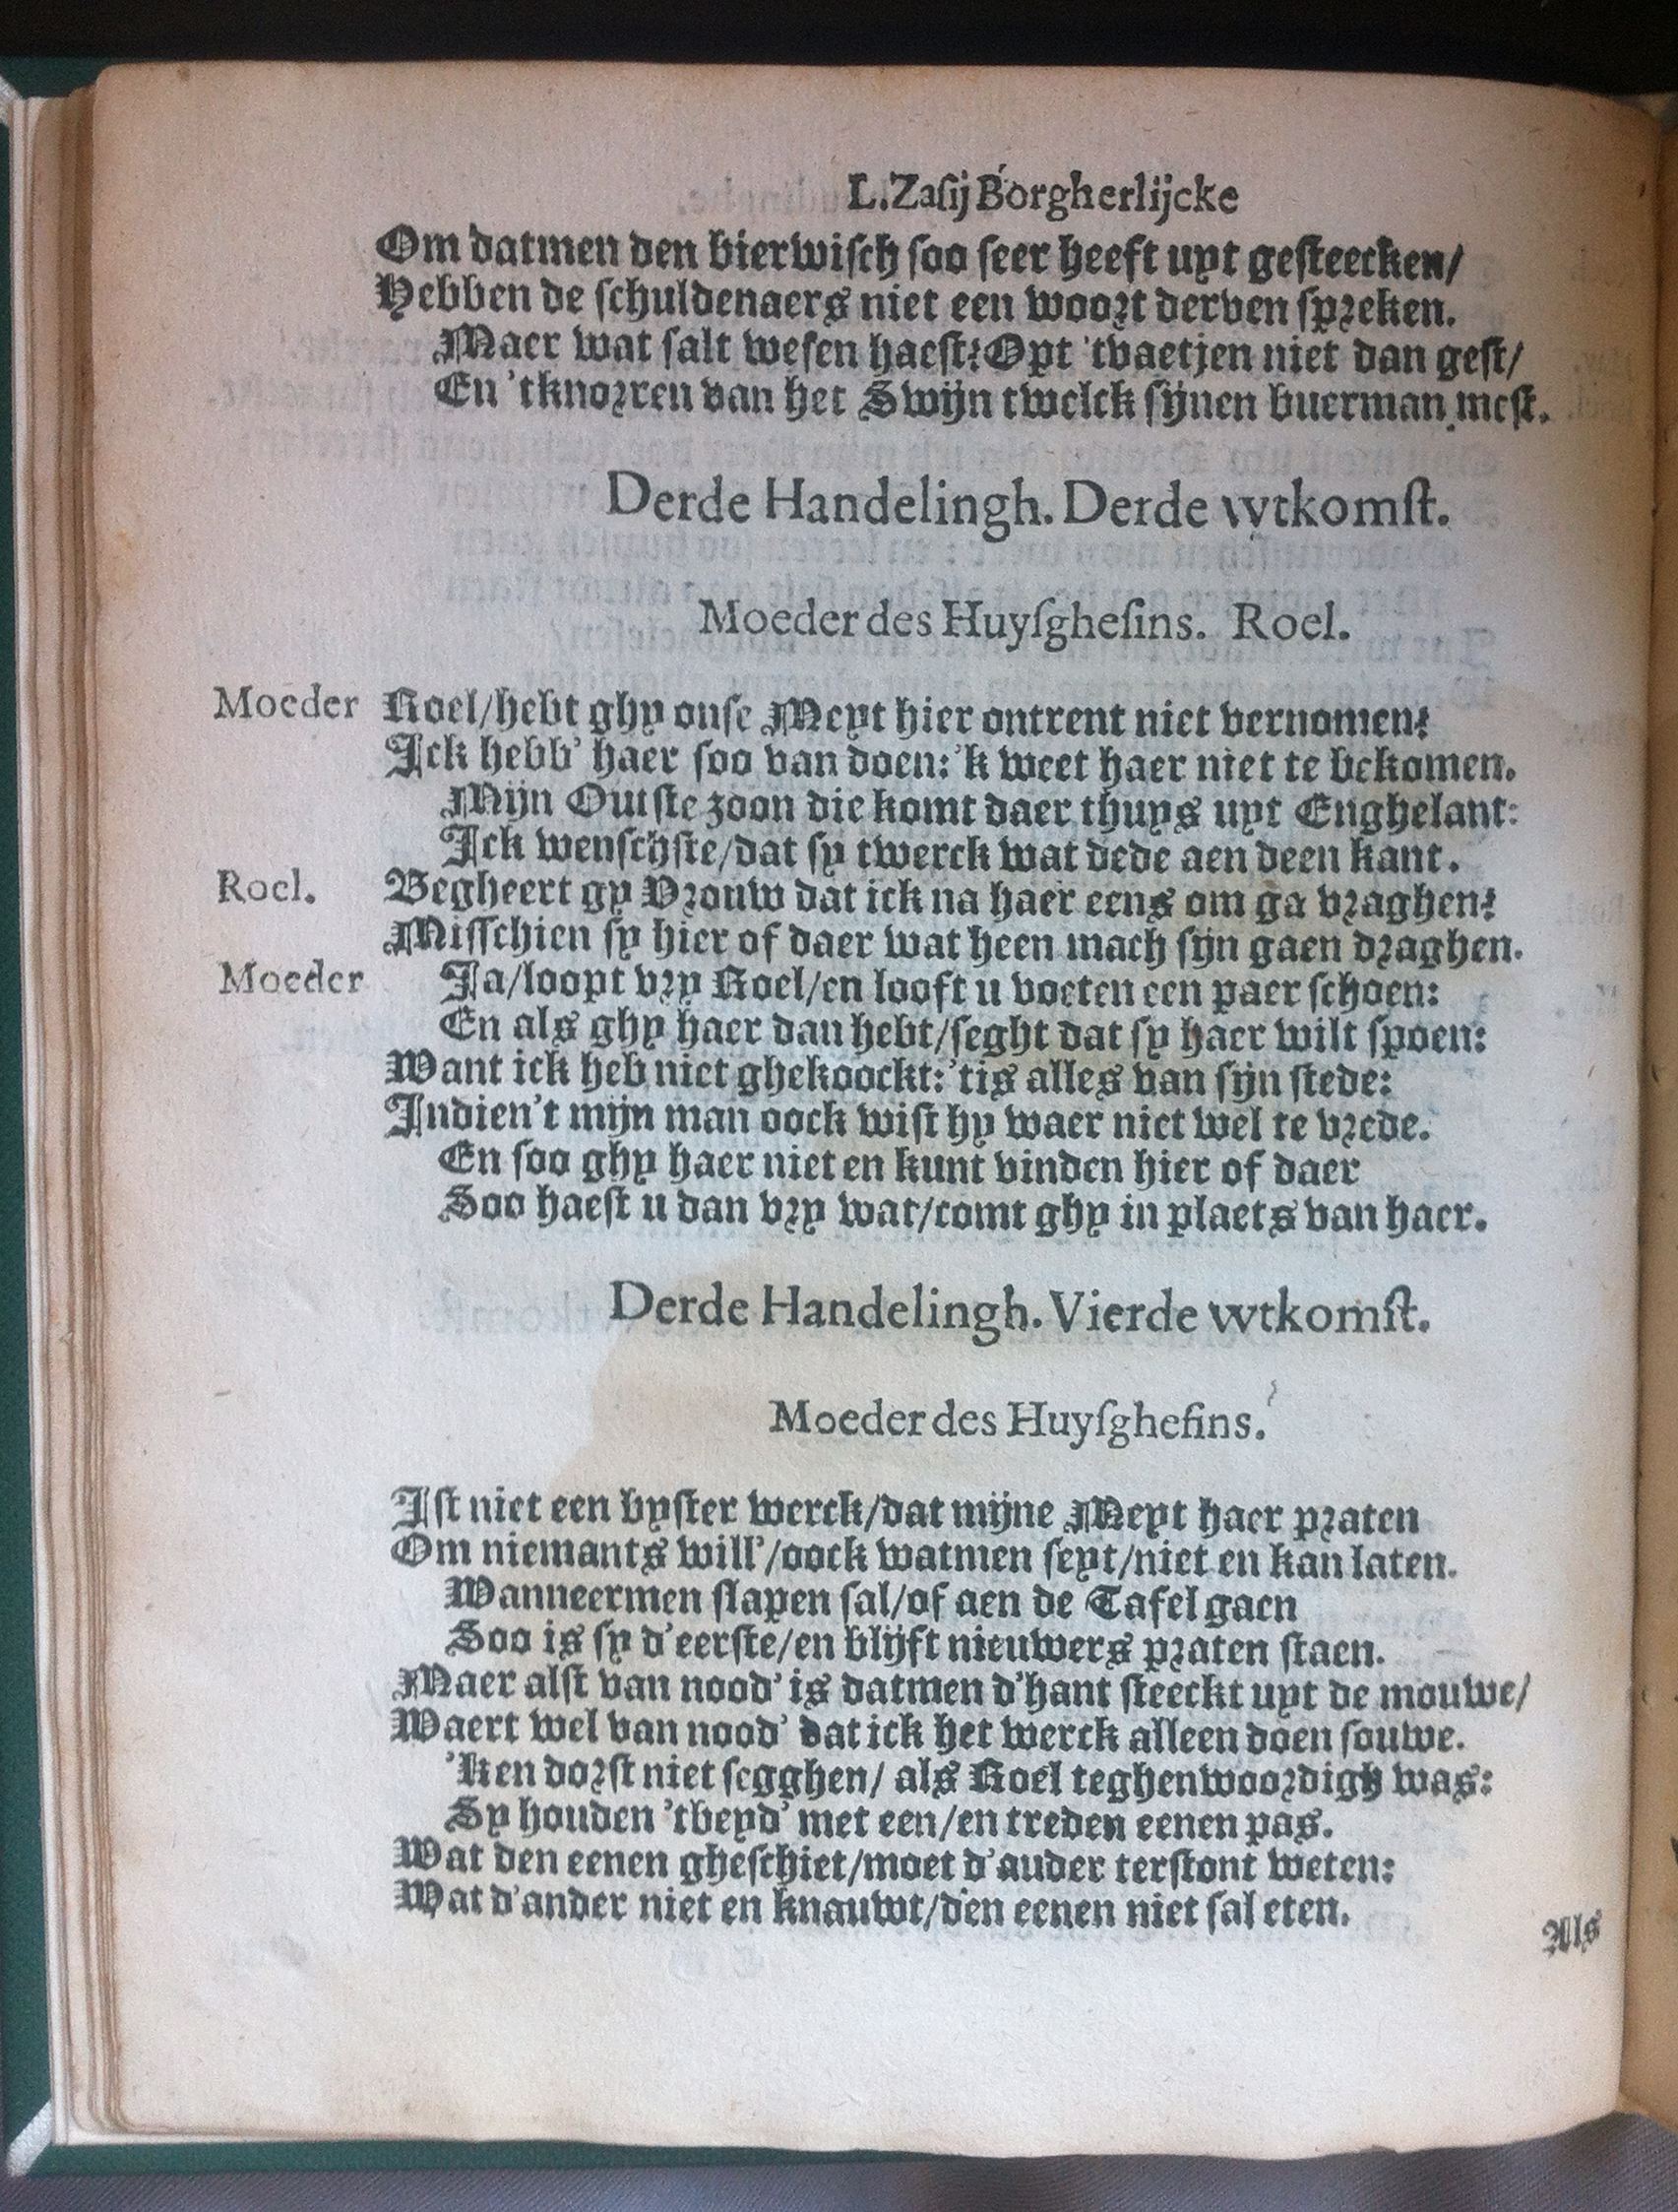 L.Zasij Borgherlijcke
Om datmen den bierwisch soo seer heeft uyt gesteecken/
Hebben de schuldenaers niet een woort derven spreken.
Maer wat salt wesen haest? Opt 'tvaetjen niet dan gest/
En 'tknorren van het Swijn twelck sijnen buerman mest.
Derde Handelingh. Derde wtkomst.
Moeder des Huysghesins. Roel.
Moeder Roel/hebt ghy onse Meyt hier ontrent niet vernomen?
Ick hebb' haer soo van doen: 'k weet haer niet te bekomen.
Mijn Outste zoon die komt daer thuys uyt Enghelant:
Ick wenschste/dat sy twerck wat dede aen deen kant.
Roel. Begheert gy Vrouw dat ick na haer eens om ga vraghen?
Misschien sy hier of daer wat heen mach sijn gaen draghen.
Moeder Ja/loopt vry Roel/en looft u voeten een paer schoen:
En als ghy haer dan hebt/seght dat sy haer wilt spoen:
Want ick heb niet ghekoockt: 'tis alles van sijn stede:
Indien't mijn man oock wist hy waer niet wel te vrede.
En soo ghy haer niet en kunt vinden hier of daer
Soo haest u dan vry wat/comt ghy in plaets van haer.
Derde Handelingh. Vierde wtkomst.
Moeder des Huysghesins.
Ist niet een byster werck/dat mijne Meyt haer praten
Om niemants will'/oock watmen seyt/niet en kan laten.
Wanneermen slapen sal/of aen de Tafel gaen
Soo is sy d'eerste/en blijft nieuwers praten staen.
Maer alst van nood' is datmen d'hant steeckt uyt de mouwe/
Waert wel van nood' dat ick het werck alleen doen souwe.
'Ken dorst niet segghen/ als Roel teghenwoordigh was:
Sy houden 'tbeyd' met een/en treden eenen pas.
Wat den eenen gheschiet/moet d'auder terstont weten:
Wat d'ander niet en knauwt/den eenen niet sal eten.
Als